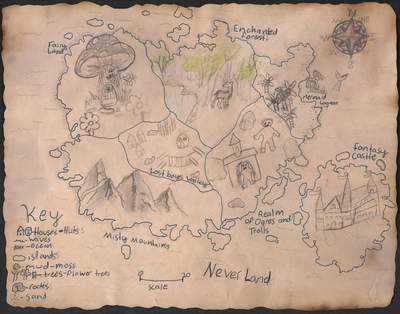 Enchanted
Forest
Fairy
Land
N
E
S
W
Mermaid
Lagoon
Fantasy
Castle
Lost boys Village
Realm
of Ogres and
Trolls
Misty Mountains
Never Land
scale
Key
Houses-Huts
-waves
-ocean
-islands
-mud-moss
-trees-flower trees
-rocks
- sand